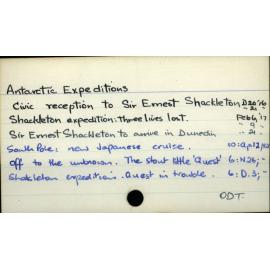 Antarctic Expeditions
Civic reception to Sir Ernest Shackleton D20,'16
" 21
Shackleton expedition: three lives lost. Feb 6, '17
" 9
Sir Ernest Shackleton to arrive in Dunedin " 21
South Pole: new Japanese cruise.
Off to the unknown. The stout little 'Quest' 6: N26; -
Shackleton expedition. Quest in trouble. 6: D.3; -
ODT.